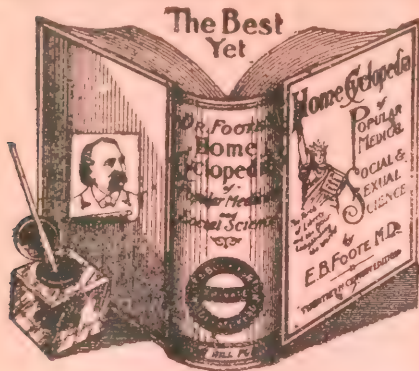 The Best
Yet
DR. FOOTE'S
Home
Cyclopedia
of
Popular Medical
and
Social Science
Home Cyclopedia
of
POPULAR
MEDICAL
SOCIAL &
SEXUAL
SCIENCE
by
E.B. FOOTE M.D.
TWENTIETH CENTURY EDITION